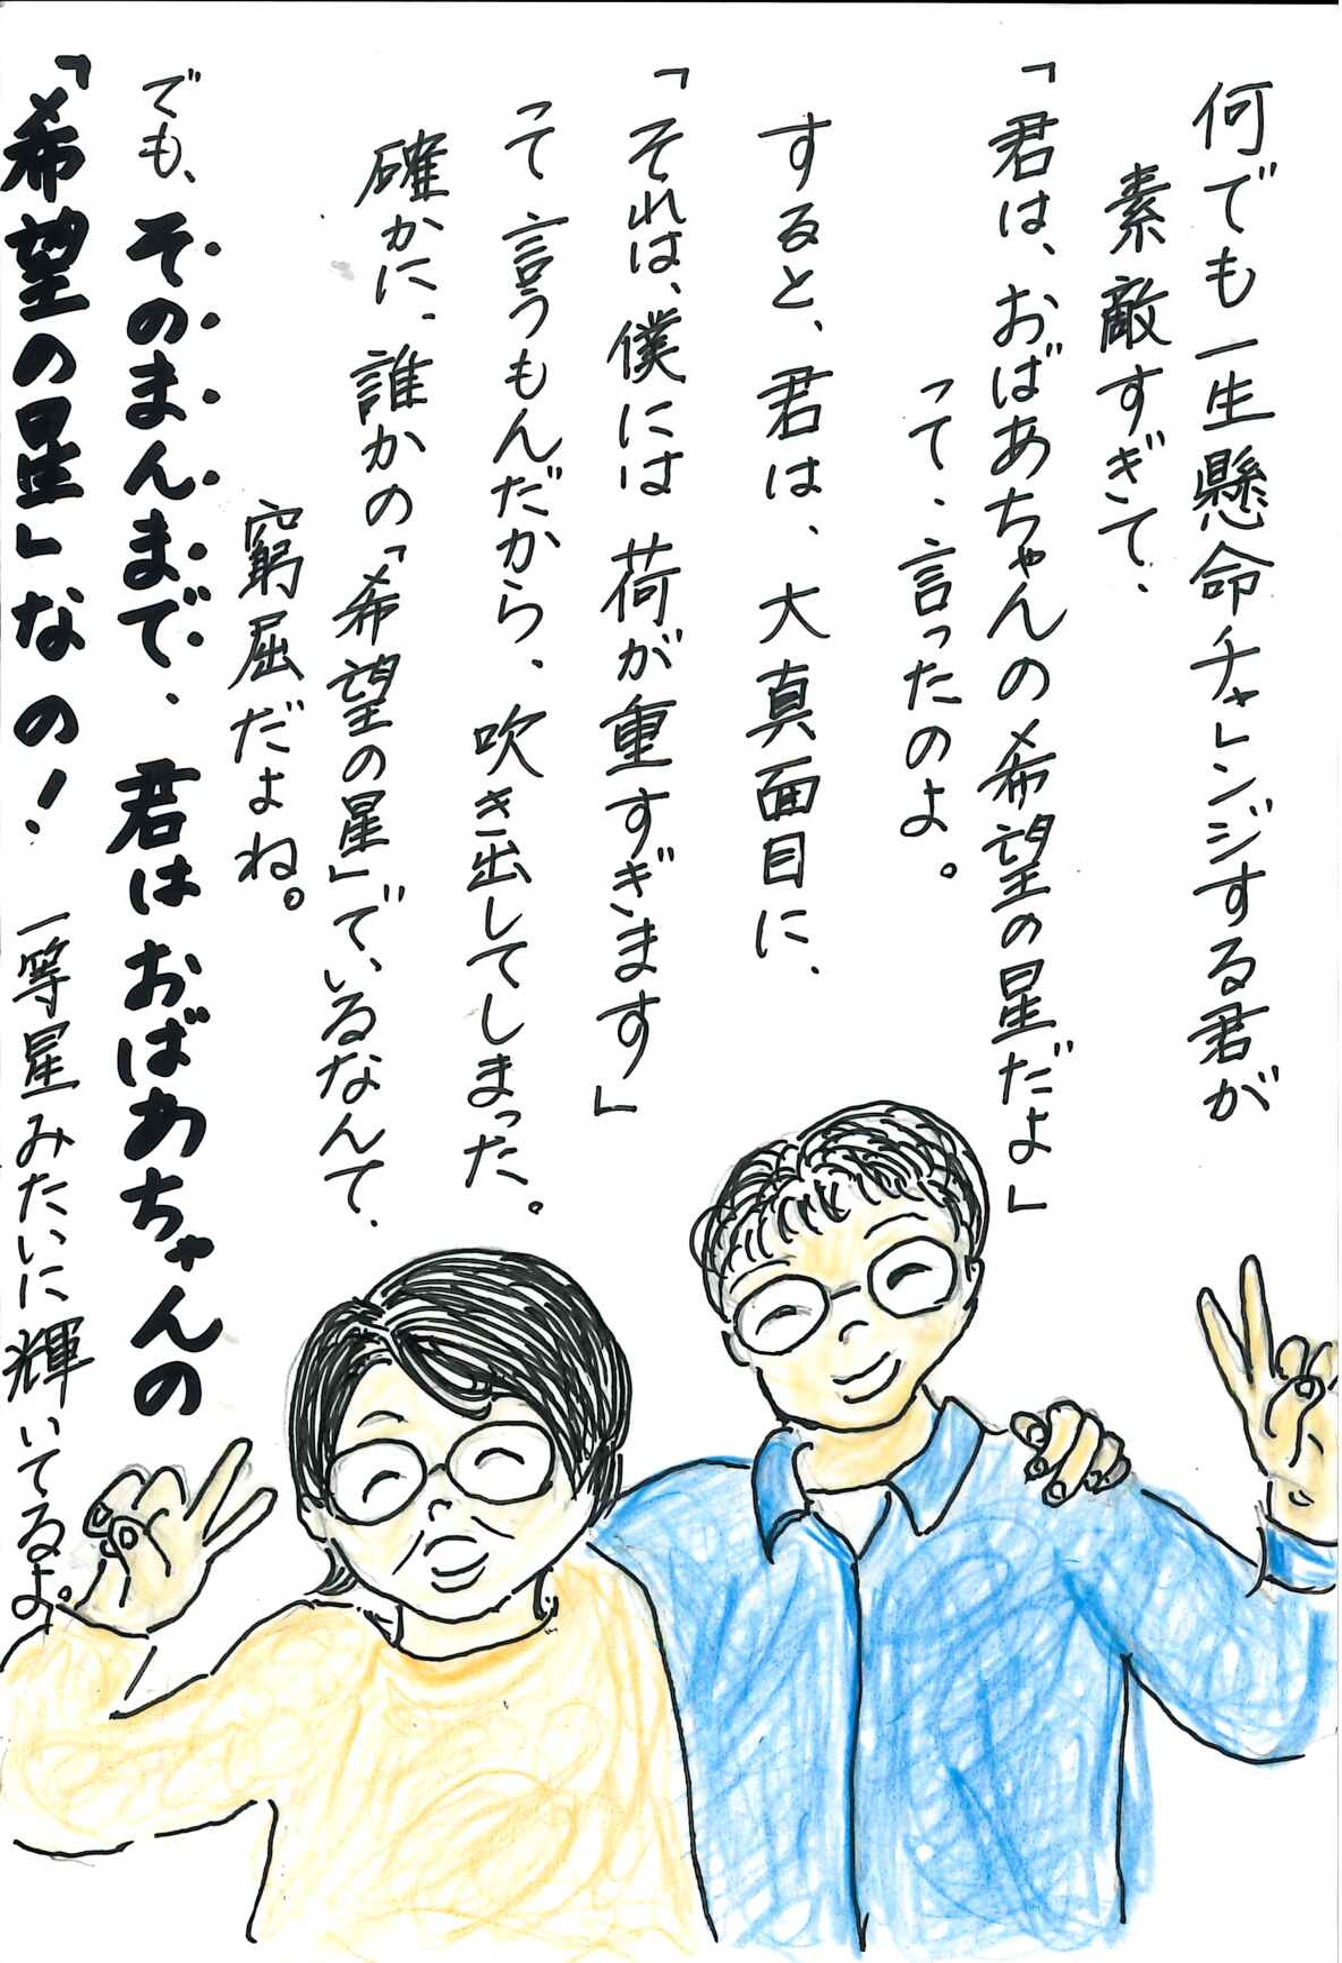 何でも一生懸命チャレンジする君が
素敵すぎて、
「君は、おばあちゃんの希望の星だよ」
って、言ったのよ。
すると、君は、大真面目に、
「それは、僕には荷が重すぎます」
って言うもんだから、吹き出してしまった。
確かに、誰かの「希望の星」で、いるなんて、
窮屈だよね。
でも、そのまんまで、君はおばあちゃんの
「希望の星」なの！一等星みたいに輝いてるよ。